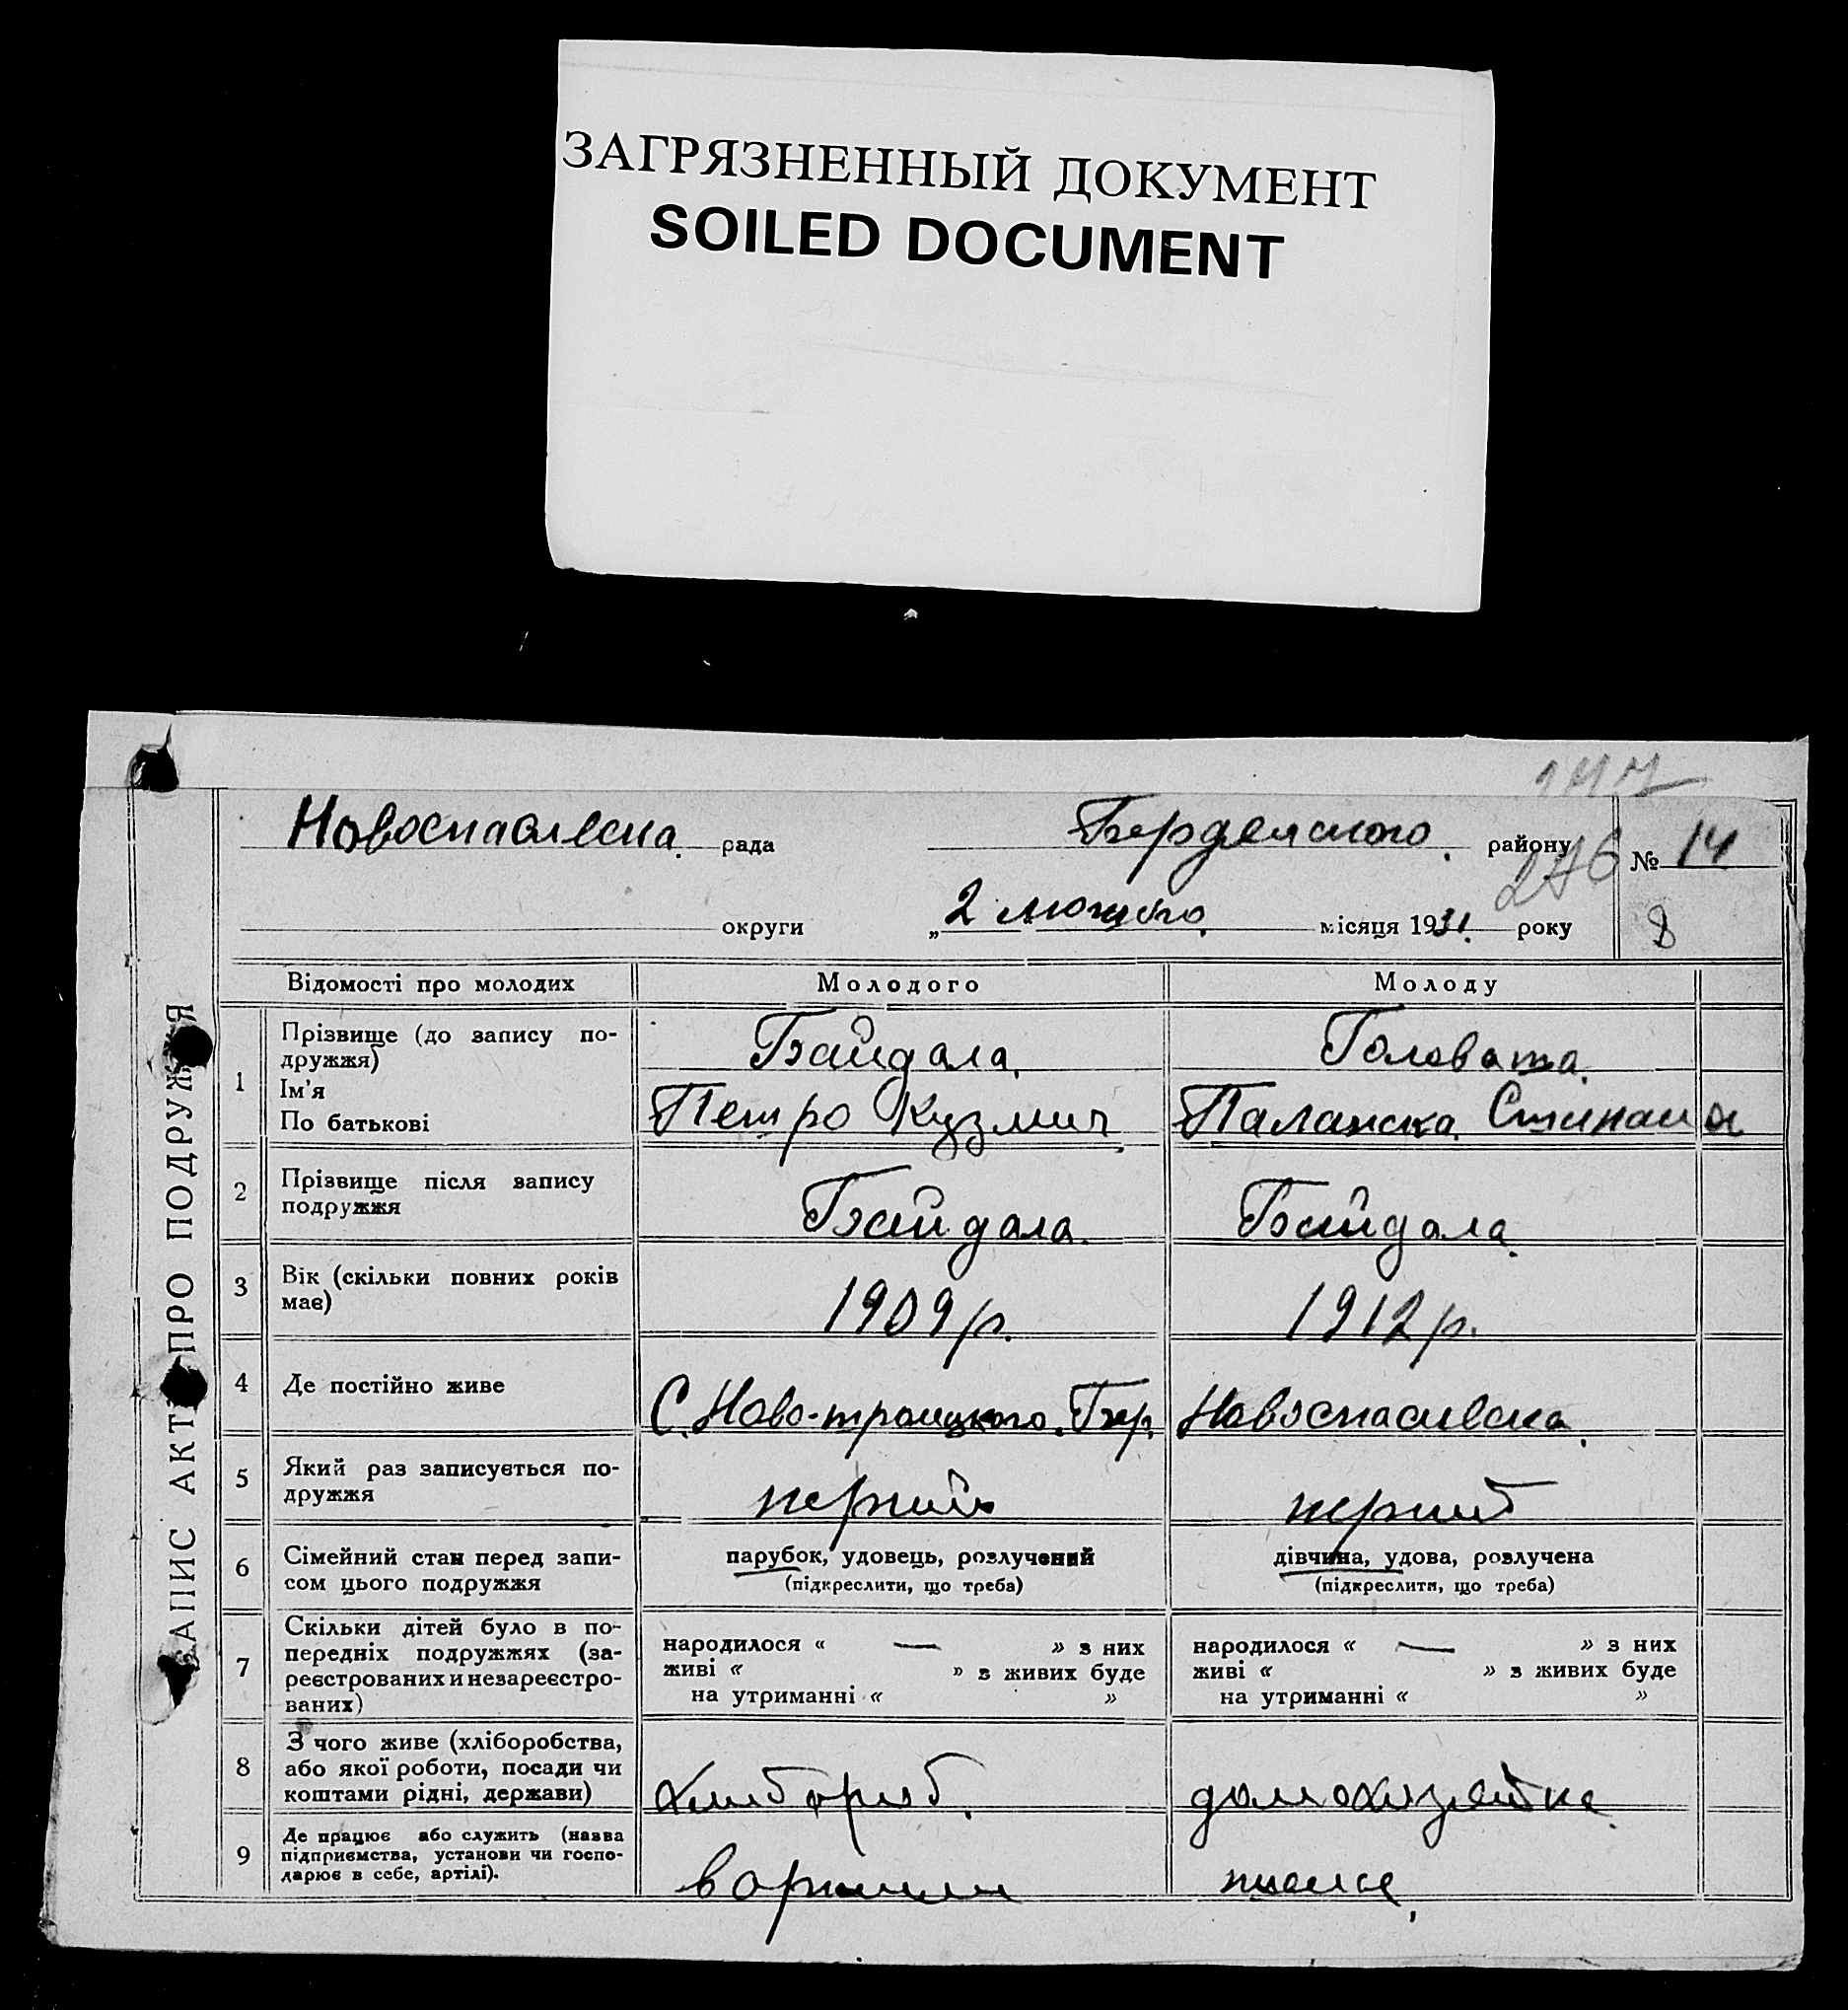 ЗАГРЯЗНЕННЫЙ ДОКУМЕНТ
SOILED DOCUMENT
Новоспасівска рада Бердянського району № 14
276
округи „2 лютого місяця 1931 року 8
ЗАПИС АКТ ПРО ПОДРУЖЖЯ
Відомості про молодих Молодого Молоду
1 Прізвище (до запису по-
дружжя) Байдала Головата
Ім'я
По батькові Петро Кузмич Палажка Степана
2 Прізвище після запису
подружжя Байдала Байдала
3 Вік (скільки повних років
має) 1909 р. 1912 р.
4 Де постійно живе С. Ново-троицкого Бер. Новоспасивска
5 Який раз записується по-
дружжя перший перший
6 Сімейний стан перед запи-
сом цього подружжя
парубок, удовець, розлучений дівчина, удова, розлучена
(підкреслити, що треба) (підкреслити, що треба)
7 Скільки дітей було в по-
передніх подружжях (за-
реєстрованих и незареєстро-
ваних)
народилося « — » з них народилося « — » з них
живі « » з живих буде живі « » з живих буде
на утриманні « » на утриманні « »
8 З чого живе (хліборобства,
або якої роботи, посади чи
коштами рідні, держави) хлибороб домохозяйка
9 Де працює або служить (назва
підприємства, установи чи госпо-
дарює в себе, артілі). в артили